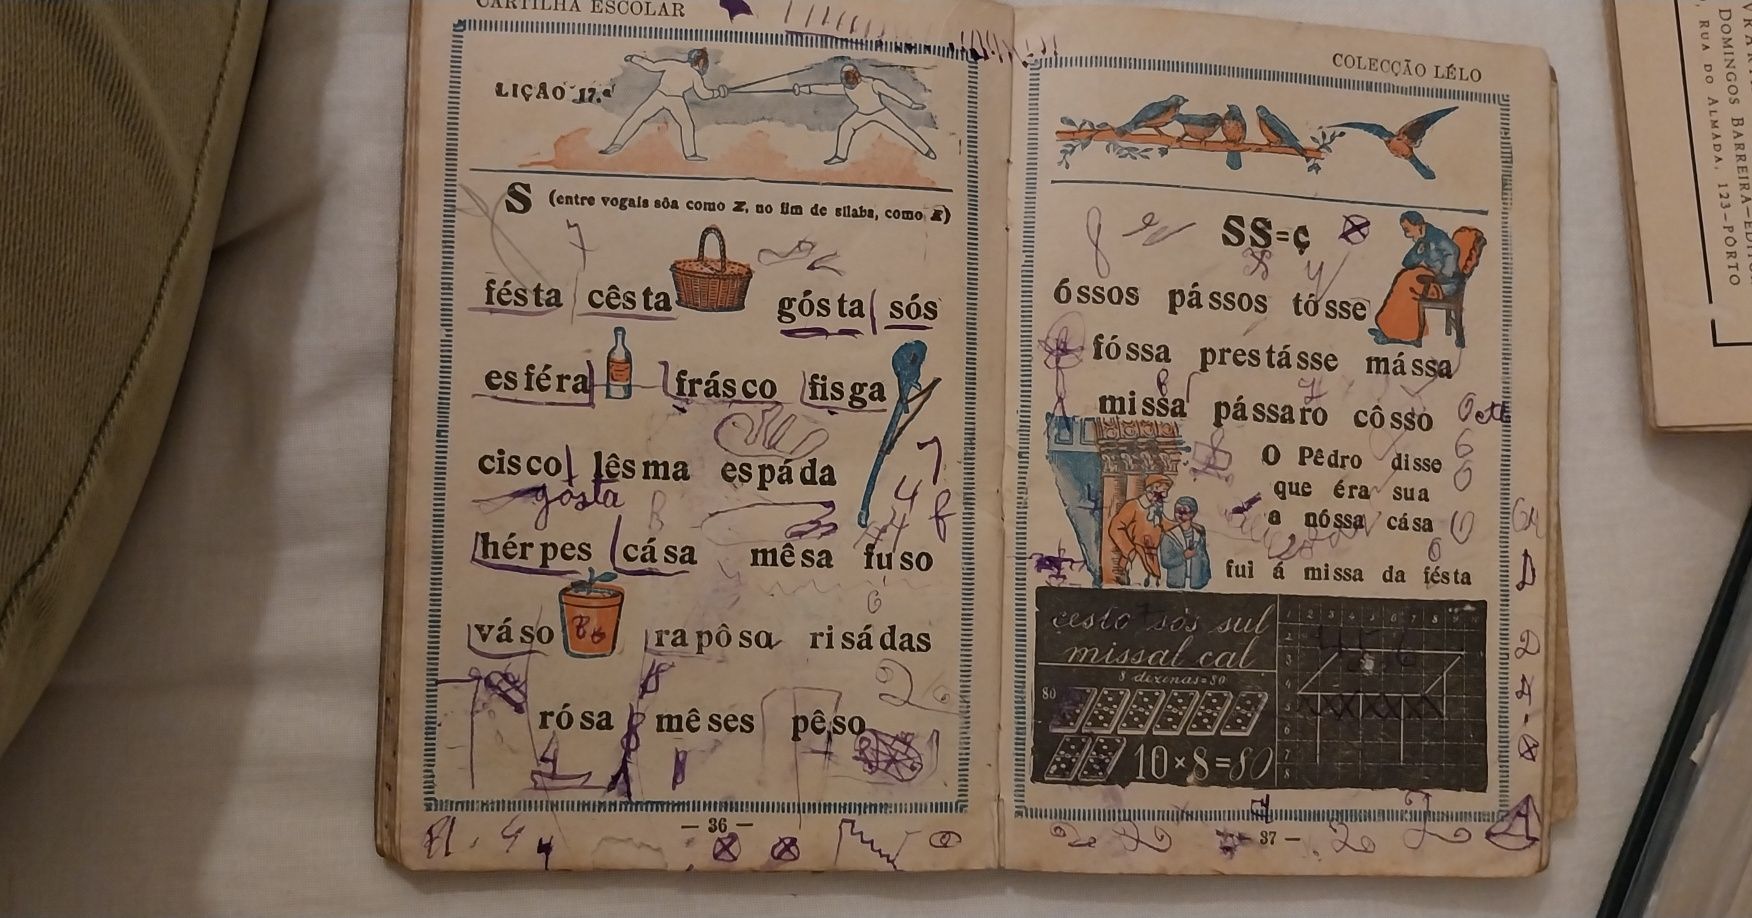 CARTILHA ESCOLAR
LIÇÃO 17.ª
S (entre vogais sôa como Z, no fim de sílaba, como X)
fés ta cês ta gós ta sós
es fé ra frás co fis ga
cis co lês ma es pá da
gósta
hér pes cá sa mê sa fu so
vá so ra pô sa ri sá das
ró sa mê ses pê so
— 36 —
COLECÇÃO LÉLO
SS=ç
ó ssos pá ssos tó sse
fó ssa pres tá sse má ssa
mi ssa pá ssa ro cô sso
O Pêdro disse
que éra sua
a nóssa cása
fui á missa da fésta
cesto sós sul
missal cal
8 dezenas=80
80
10×8=80
1 2 3 4 5 6 7 8 9
2
3
4
5
6
7
8
37 —
DOMINGOS BARREIRA—
RUA DO ALMADA, 123—PÔRTO